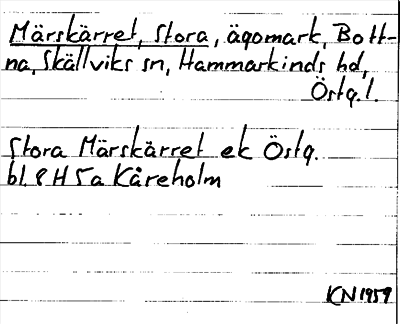 Märskärret, Stora, ägomark, Bott-
na, Skällviks sn, Hammarkinds hd,
Östg. l.
Stora Märskärret ek Östg.
bl. 8 H 5a Kåreholm
KN 1959